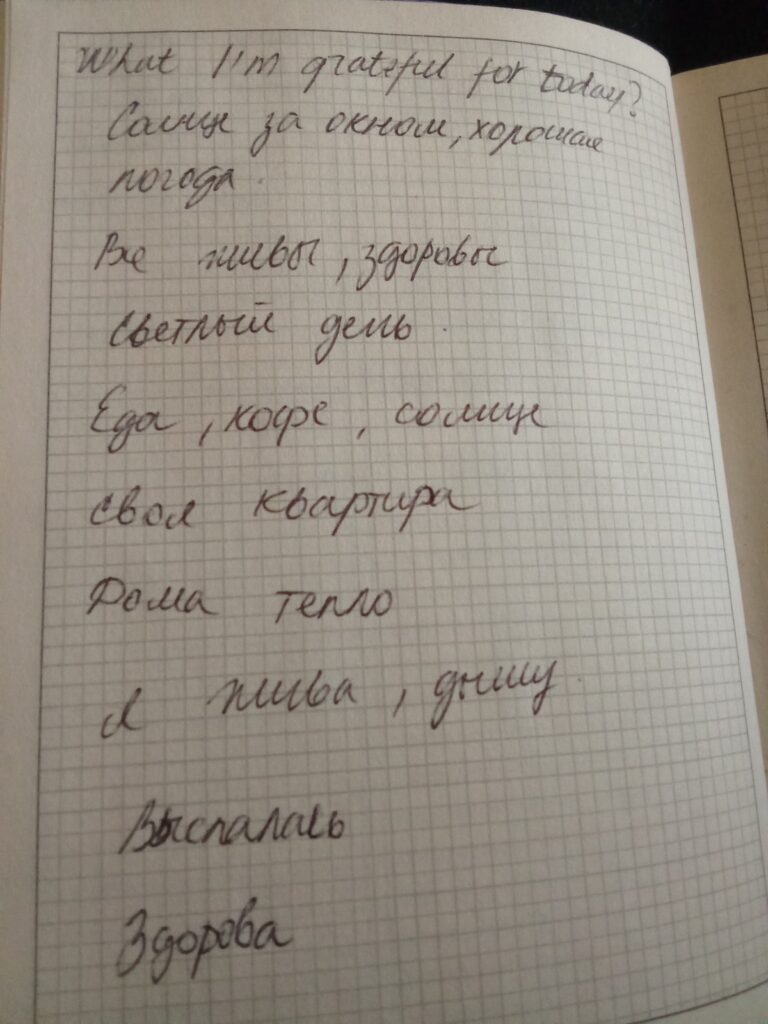 What I'm grateful for today?
Солнце за окном, хорошая
погода.
Все живы, здоровы
Светлый день.
Еда, кофе, солнце
Своя квартира
Дома тепло
Я жива, дышу.
Выспалась
Здорова